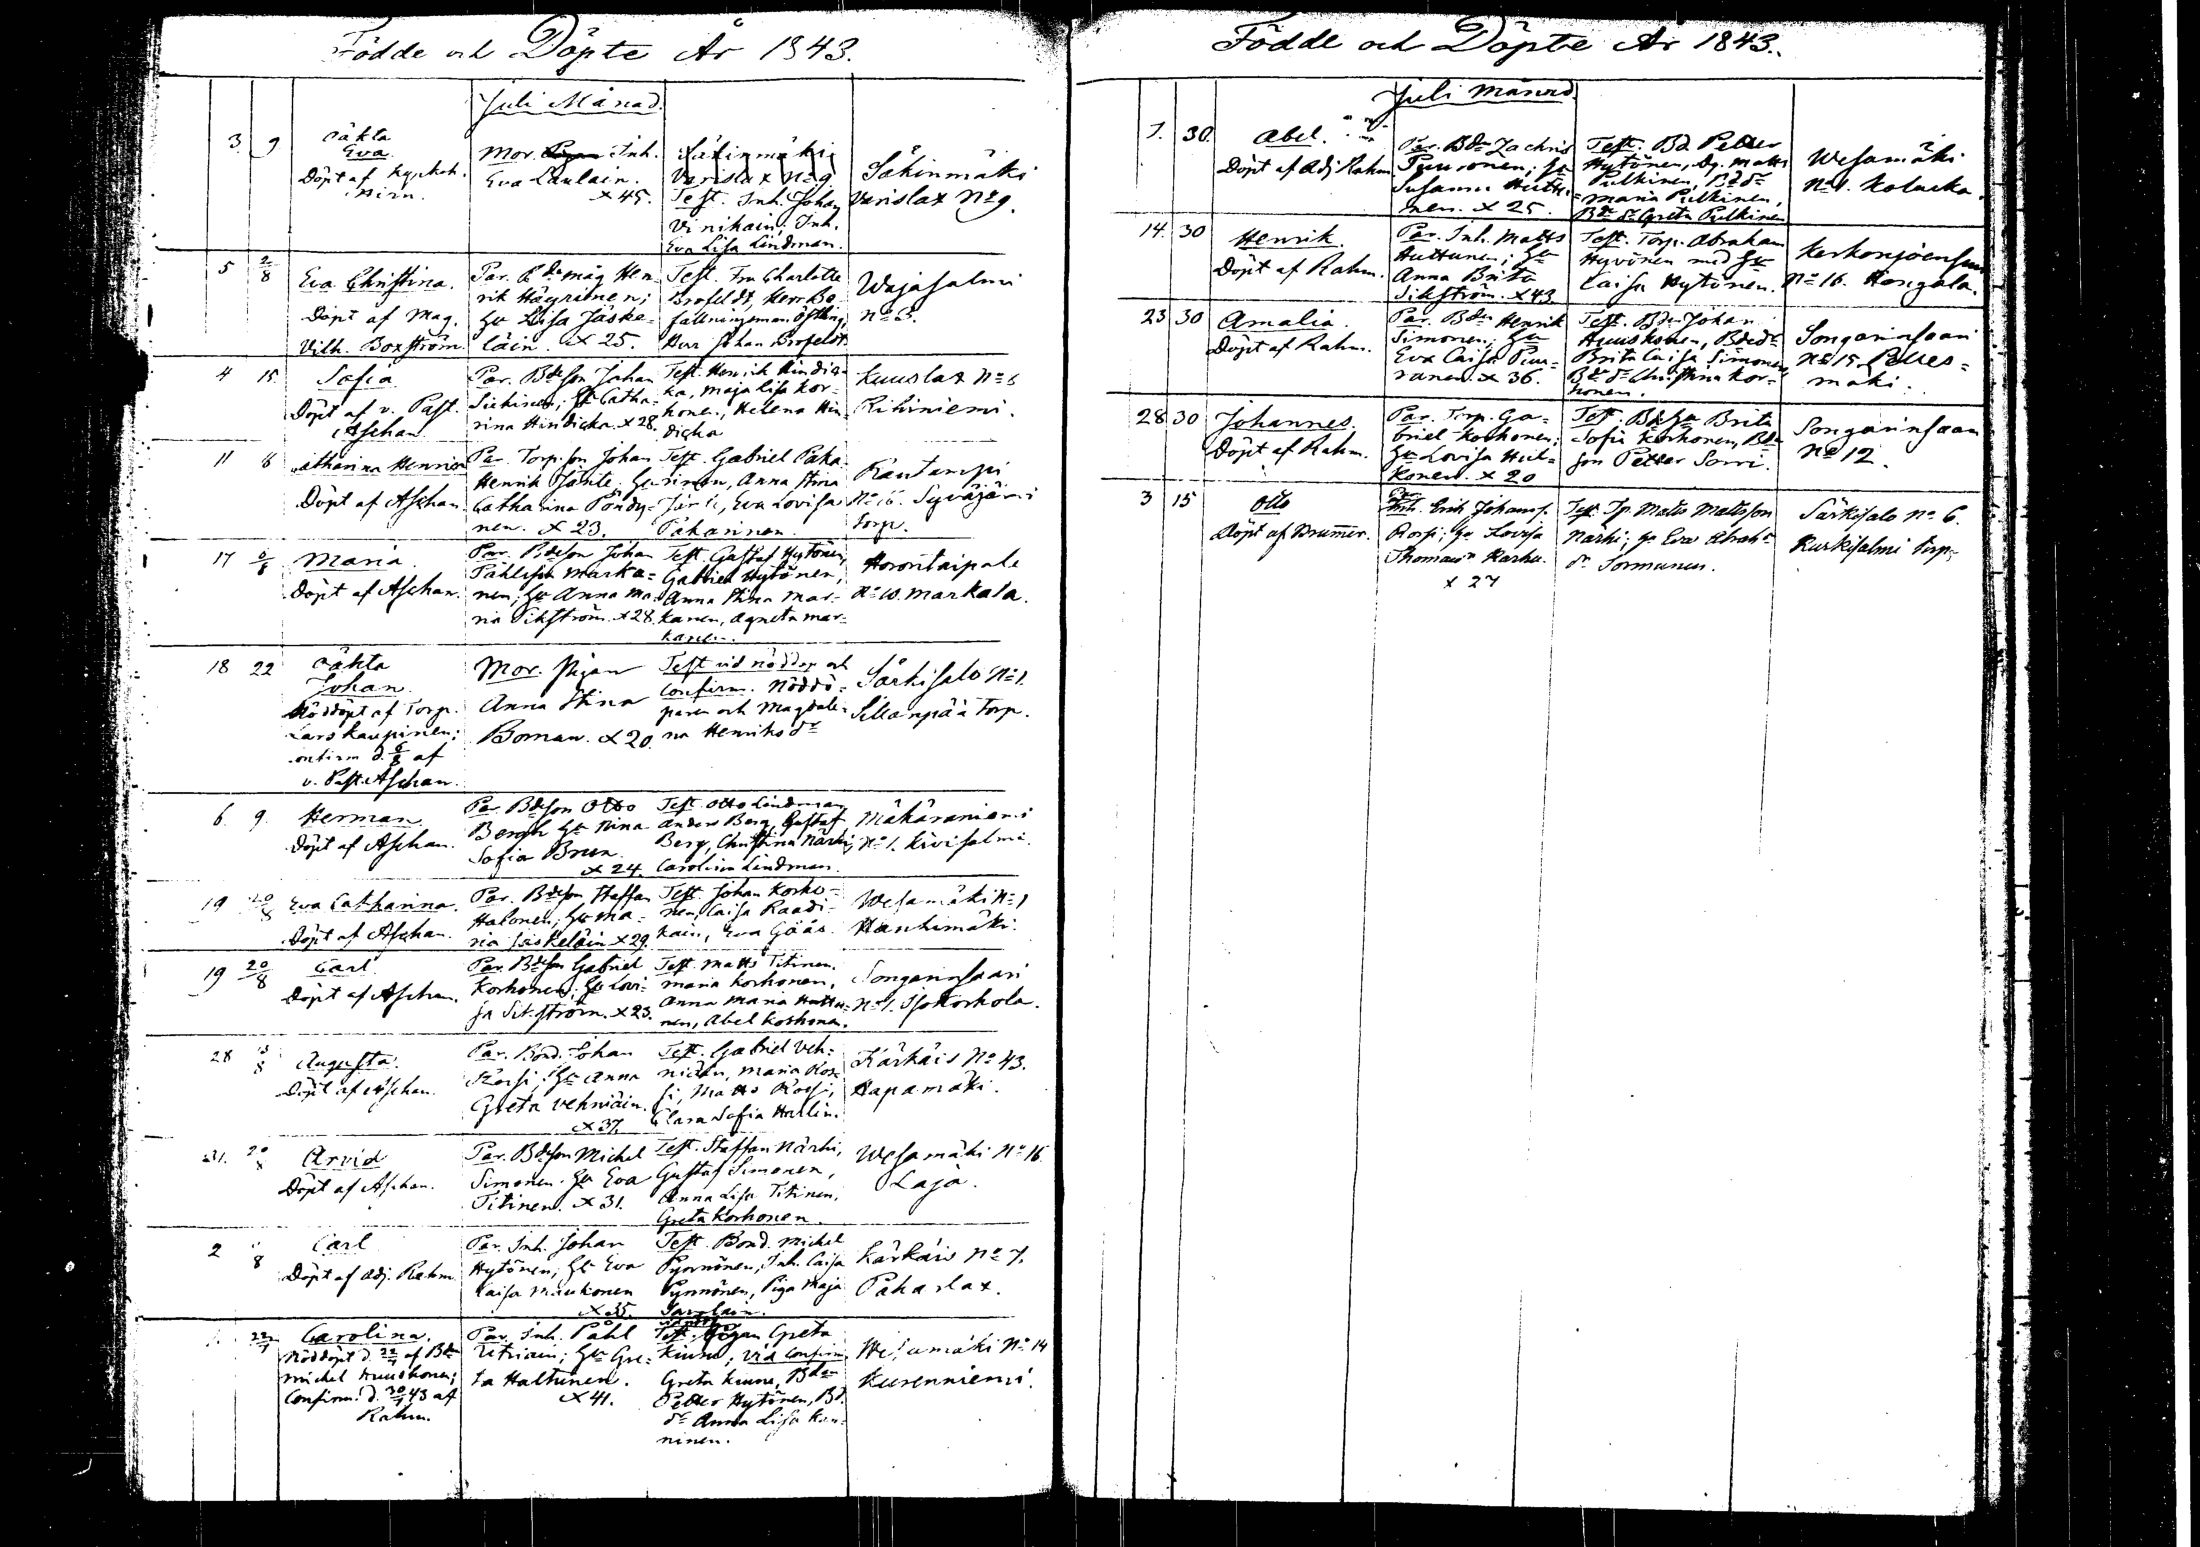 Födde och Döpte År 1843.
Juli Månad.
3 9 oäkta
Eva
Döpt af Kyrkoh.
Mor. Inh.
Eva Laulain.
x 45.
Säkinmäki
Varislax No 9
Test. Inh. Johan
Vinikain, Inh.
Eva Lisa Lindman.
Säkinmäki
Varislax No 9.
5 2/8 Eva Christina.
Döpt af Mag.
Vilh. Boxström.
Par. Bdemåg Hen-
rik Häyrinen;
Hu Lisa Jäske-
läin. x 25.
Test. Fru Charlotte
Brofeldt, Herr Be-
fallningsman Östling,
Herr Johan Brofeldt.
Wajasalmi
No 3.
4 15 Sofia
Döpt af v. Past.
Aschan.
Par. Bdeson Johan
Siekinen; Hu Catha-
rina Hindicka. x 28.
Test. Henrik Hindic-
ka, Maja Lisa Kor-
honen, Helena Hin-
dicka
Kuuslax No
Rihiniemi.
11 8 Catharina Henrica
Döpt af Aschan.
Par. Torp. son Johan
Henrik Jänte; Hu
Catharina Pöndy-
nen. x 23.
Test. Gabriel Paka-
rinen, Anna Stina
Eva Lovisa
Pakarinen
Rautampi
No 16. Syväjärvi
torp.
17 6/8 Maria.
Döpt af Aschan.
Par. Bdeson Johan
Påhlsson Marka-
nen; Hu Anna Ma-
ria Sikström. x 28.
Test. Gustaf Hytönen,
Gabriel Hytönen,
Anna Stina Mar-
kanen, Agneta Mar-
kanen.
Horontaipale
No 10. Markala.
18 22 oäkta
Johan.
Nöddöpt af Torp.
Lars Kaupinen;
confirm d. 6/8 af
v. Past. Aschan.
Mor. Pigan
Anna Stina
Boman. x 20.
Test vid nöddop och
Confirm. Nöddö-
paren och Magdale-
na Henriksdr
Särkisalo No 1.
Sillanpää Torp.
6 9. Herman
Döpt af Aschan.
Par Bdeson Otto
Bergh Hu Stina
Sofia Brun
x 24.
Test. Otto Lindman
Anders Berg, Gustaf
Berg, Christina Närhi,
Carolina Lindman.
Mäkäraniemi
No 1. Kivisalmi.
19 20/8 Eva Catharina.
Döpt af Aschan.
Par. Bdeson Staffan
Halonen; Hu Ma-
ria Jäskeläin x 29.
Test. Johan Korho-
nen, Caisa Raadi-
kain, Eva Göös.
Wesamäki No 1
Hanhimäki.
19 20/8 Carl
Döpt af Aschan.
Par. Bdeson Gabriel
Korhonen; Hu Lovi-
sa Sikström. x 23.
Test. Matts Titinen.
Maria Korhonen,
Anna Maria Huttu-
nen, Abel Korhonen.
Songarinsaari
No 1. Isokorhola.
28 8 Augusta.
Döpt af Aschan.
Par. Bond. Johan
Rossi; Hu Anna
Greta Vehniäin.
x 37.
Test. Gabriel Veh-
niäin, Maria Ros-
si, Matts Rossi,
Clara Sofia Harlin.
Kärkäis No 43.
Hapamäki.
31. 20/8 Arvid
Döpt af Aschan.
Par. Bdeson Michel
Simonen. Hu Eva
Titinen. x 31.
Test. Staffan Närhi,
Gustaf Simonen,
Anna Lisa Titinen,
Greta Korhonen.
Wesamäki No 16
Laja.
2 8 Carl
Döpt af Adj. Rahm
Par. Inh. Johan
Hytönen; Hu Eva
Caisa Maukonen
x 35.
Test. Bond. Michel
Pynnönen, Inh. Caisa
Pynnönen, Piga Maja
Savolain.
Kärkäis No 7.
Paharlax.
22/7 Carolina.
Nöddöpt d. 22/7 af Bden
Michel Huuskonen;
Confirm. d. 30/7 43 af
Rahm.
Par. Inh. Påhl
Utriain; Hu Gre-
ta Haltunen.
x 41.
Test. Pigan Greta
Kinnu; vid Confirm.
Greta Kinnu, Bden
Petter Hytönen, Bd.
dr Anna Lisa Kan-
ninen.
Wesamäki No 14
Kusenniemi.
Födde och Döpte År 1843.
Juli Månad.
7. 30. Abel.
Döpt af Adj Rahm
Par. Bden Zachris
Puuronen; Hu
Susanna Hutti-
nen. x 25.
Test. Bd Petter
Hytönen, Dg. Matts
Pulkinen, Bd dr
Maria Pulkinen,
Bde dr Greta Pulkinen
Wesamäki
No 1. Kolucka.
14. 30 Henrik.
Döpt af Rahm.
Par. Inh. Matts
Huttunen; Hu
Anna Brita
Sikström. x 43
Test. Torp. Abraham
Hyvönen med Hu
Caisa Hytönen.
Kerkonjoensuu
No 16. Hongala.
23 30 Amalia.
Döpt af Rahm.
Par. Bden Henrik
Simonen; Hu
Eva Caisa Puu-
ranen. x 36.
Test. Bden Johan
Huuskonen, Bdedr
Brita Caisa Simonen,
Bde dr Christina Kor-
honen.
Songarinsaari
No 15
mäki.
28 30 Johannes.
Döpt af Rahm.
Par. Torp. Ga-
briel Korhonen;
Hu Lovisa Hut-
konen. x 20
Test. Bde Hu Brita
Sofia Korhonen, Bde
son Petter Sorri.
Songarinsaari
No 12.
3 15 Otto
Döpt af Brummer.
Par
Erik Johanss.
Rossi; Hu Lovisa
Thomasdr Karhu.
x 27
Test. Tp. Matts Mattsson
Närhi; Hu Eva Abrah
dr Tormunen.
Särkisalo No 6.
Kurkisalmi Torp.